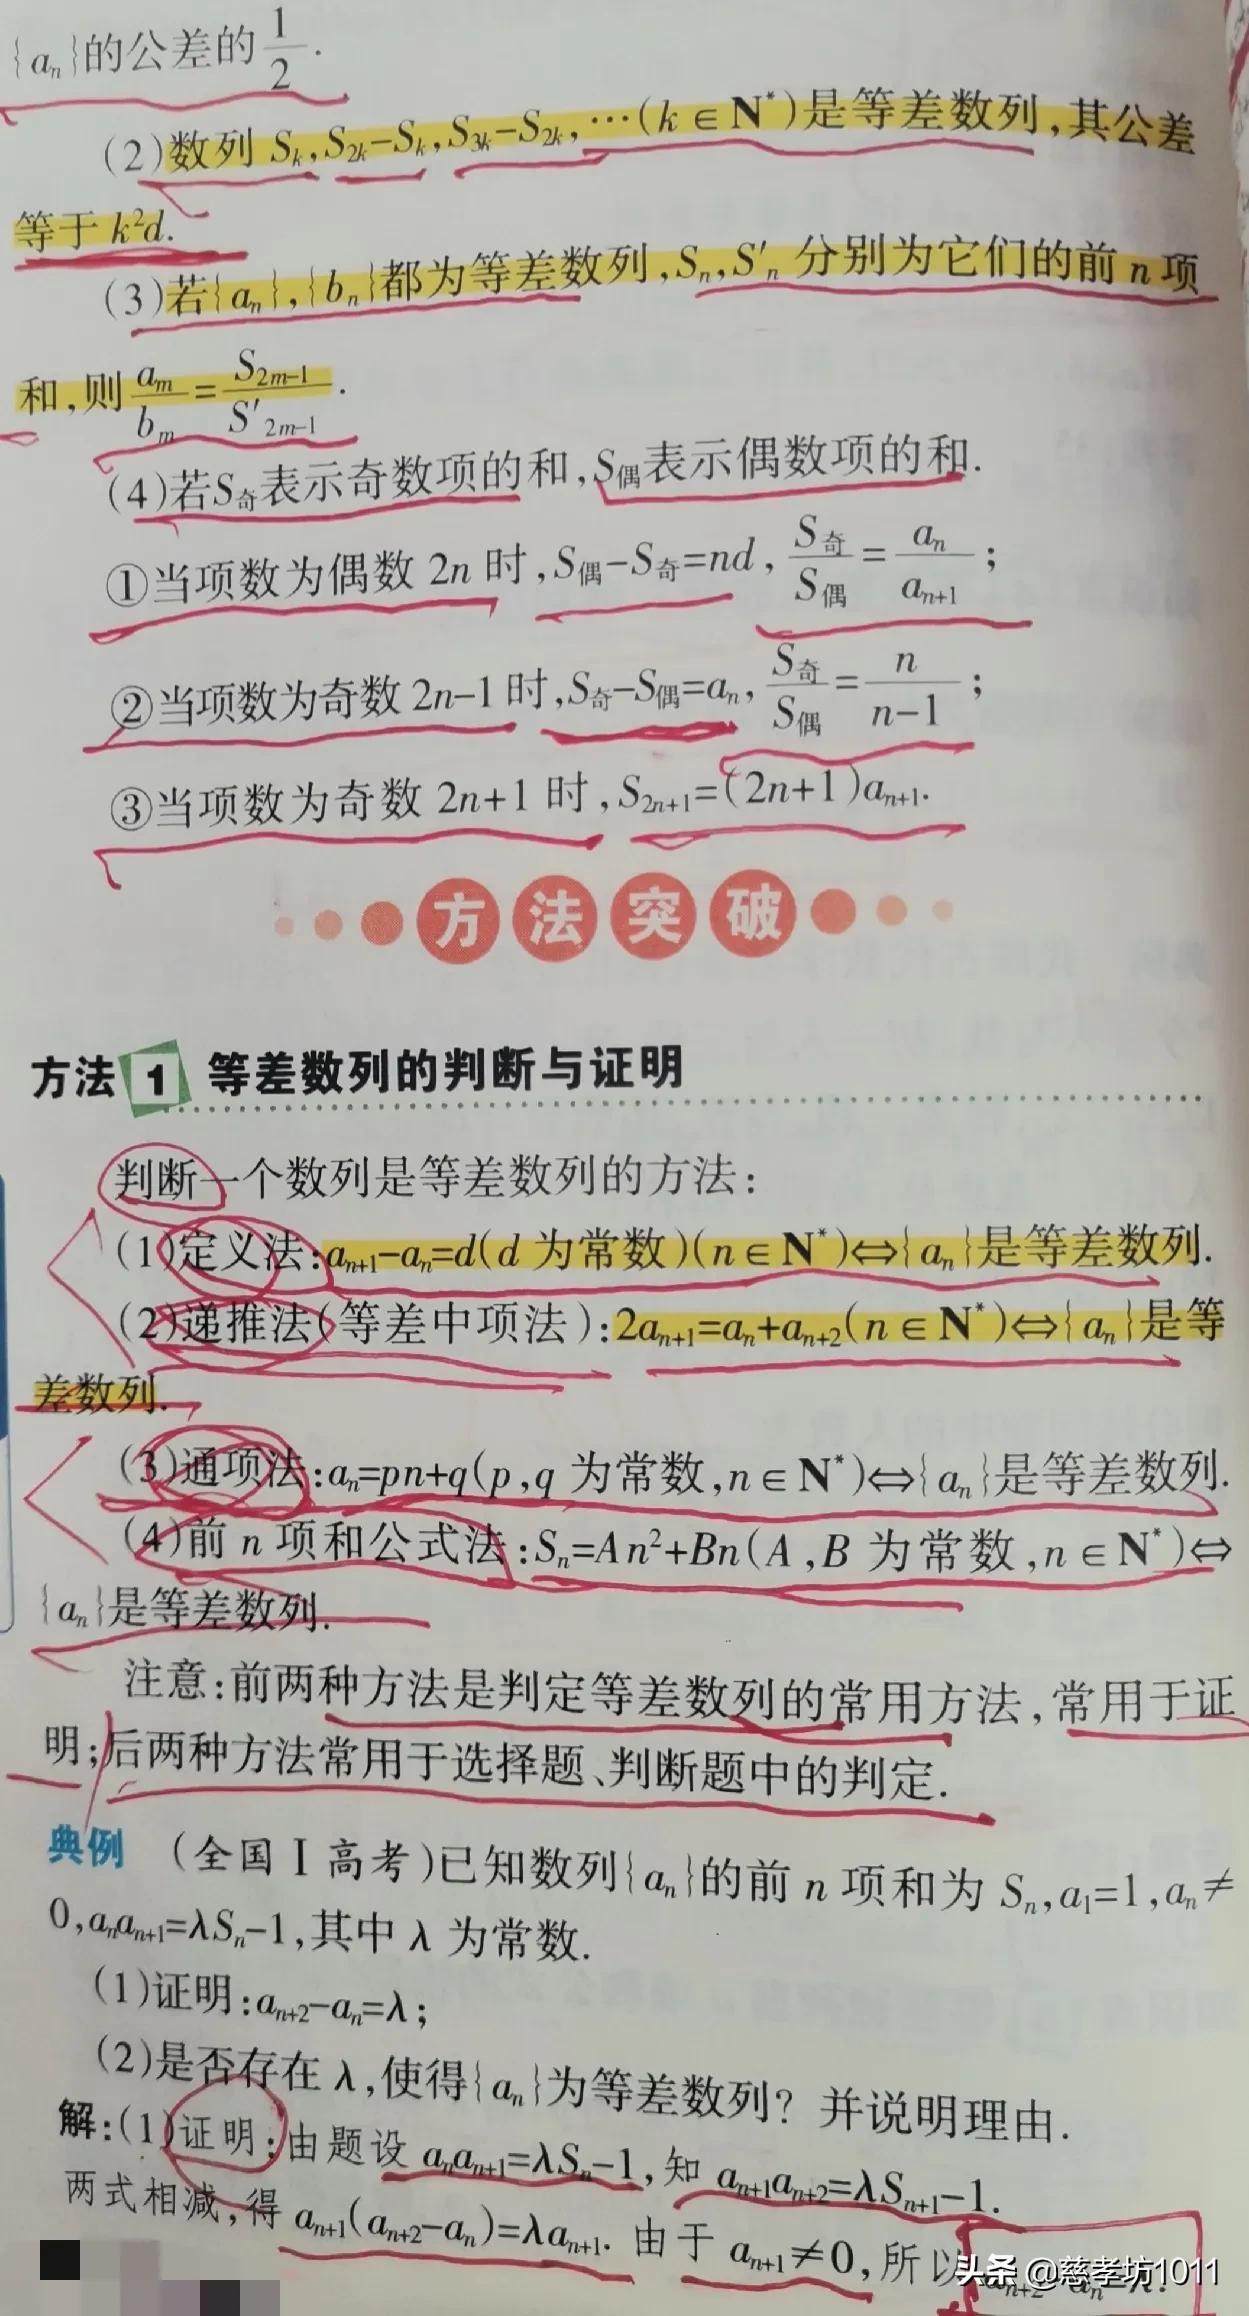 {aₙ}的公差的1/2.
(2)数列 Sₖ,S₂ₖ-Sₖ,S₃ₖ-S₂ₖ,…(k∈N*)是等差数列,其公差
等于 k²d.
(3)若{aₙ},{bₙ}都为等差数列,Sₙ,S′ₙ 分别为它们的前 n 项
和,则 aₘ/bₘ=S₂ₘ₋₁/S′₂ₘ₋₁.
(4)若S奇表示奇数项的和,S偶表示偶数项的和.
①当项数为偶数 2n 时,S偶-S奇=nd, S奇/S偶=aₙ/aₙ₊₁;
②当项数为奇数 2n-1 时,S奇-S偶=aₙ, S奇/S偶=n/(n-1);
③当项数为奇数 2n+1 时,S₂ₙ₊₁=(2n+1)aₙ₊₁.
方法突破
方法 1 等差数列的判断与证明
判断一个数列是等差数列的方法:
(1)定义法:aₙ₊₁-aₙ=d(d 为常数)(n∈N*)⇔{aₙ}是等差数列.
(2)递推法(等差中项法):2aₙ₊₁=aₙ+aₙ₊₂(n∈N*)⇔{aₙ}是等
差数列.
(3)通项法:aₙ=pn+q(p,q 为常数,n∈N*)⇔{aₙ}是等差数列.
(4)前 n 项和公式法:Sₙ=An²+Bn(A,B 为常数,n∈N*)⇔
{aₙ}是等差数列.
注意:前两种方法是判定等差数列的常用方法,常用于证
明;后两种方法常用于选择题、判断题中的判定.
典例 (全国Ⅰ高考)已知数列{aₙ}的前 n 项和为 Sₙ,a₁=1,aₙ≠
0,aₙaₙ₊₁=λSₙ-1,其中 λ 为常数.
(1)证明:aₙ₊₂-aₙ=λ;
(2)是否存在 λ,使得{aₙ}为等差数列? 并说明理由.
解:(1)证明:由题设 aₙaₙ₊₁=λSₙ-1,知 aₙ₊₁aₙ₊₂=λSₙ₊₁-1.
两式相减,得 aₙ₊₁(aₙ₊₂-aₙ)=λaₙ₊₁. 由于 aₙ₊₁≠0,所以
头条 @慈孝坊1011